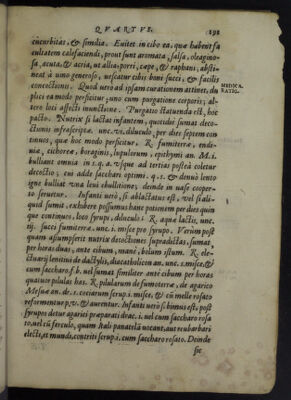 QVARTVS. 191
cucurbitæ, & similia. Euitet in cibo ea, quæ habent fa
cultatem calefaciendi, prout sunt aromata, salsa, oleagino-
sa, acuta, & acria, ut allia, porri, cæpe, & raphani, absti-
neat à uino generoso, uescatur cibis boni succi, & facilis
concoctionis. Quod uero ad ipsam curationem attinet, du
MEDICA
RATIO.
plici ea modo perficitur, uno cum purgatione corporis, al-
tero loci affecti inunctione. Purgatio statuenda est, hoc
pacto. Nutrix si lactas infantem, quotidie sumat deco-
ctionis infrascriptæ. unc. vi. diluculo, per dies septem con
tinuos, quæ hoc modo perficitur. R. fumiterræ, endi-
uiæ, cichoreæ, boraginis, lupulorum, epithymi an. M. i.
bulliant omnia in s. q. aquæ ad tertias postea coletur
decoctio, cui adde sacchari optimi. q. s. & denuò lento
igne bulliat una leui ebullitione, deinde in uase cooper-
to seruetur. Infanti uerò, si ablactatus est, vel si ali-
quid sumit, exhibere possumus hanc potionem per dies quin
que continuos, loco syrupi, diluculo. R. aquæ lactis, unc.
iij. succi fumiterræ, unc. i. misce pro syrupo. Verùm post
quam assumpserit nutrix decoctiones supradictas, sumat,
per horas duas, ante cibum, manè, bolum istum. R. ele-
ctuarij lenitiui de dactylis, diacatholicon an. unc. s. misce, &
cum saccharo f. b. uel sumat similiter ante cibum per horas
quatuor pilulas has. R. pilularum de fumoterræ, de agarico
Mesuæ an. dr. s. coctarum scrup. s. misce, & cū melle rosato
reformentur p. v. & aurentur. Infanti uerò si bimus est, post
syrupos detur agarici præparati drac. i. uel cum saccharo rosa
to, uel cū ferculo, quam Itali panatella uocant, aut reubarbari
electi, et mundi, contriti scrup. i. cum saccharo rosato. Deinde
sic